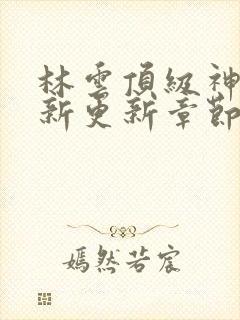 林雲頂級神
新更新章節
嫣然若宸